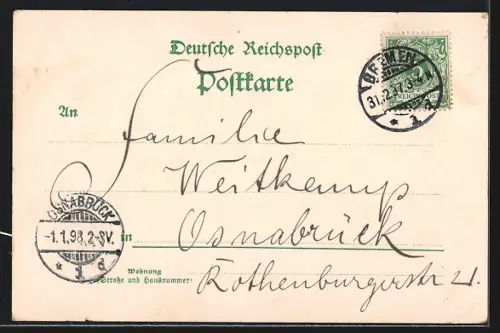 Deutsche Reichspost
Postkarte
An
Familie
Weitkamp
in Osnabrück
Wohnung
(Straße und Hausnummer)
Rothenburgerstr
BREMEN
31.12.97
* a a
OSNABRÜCK
-1.1.98.2-3V.
* a d